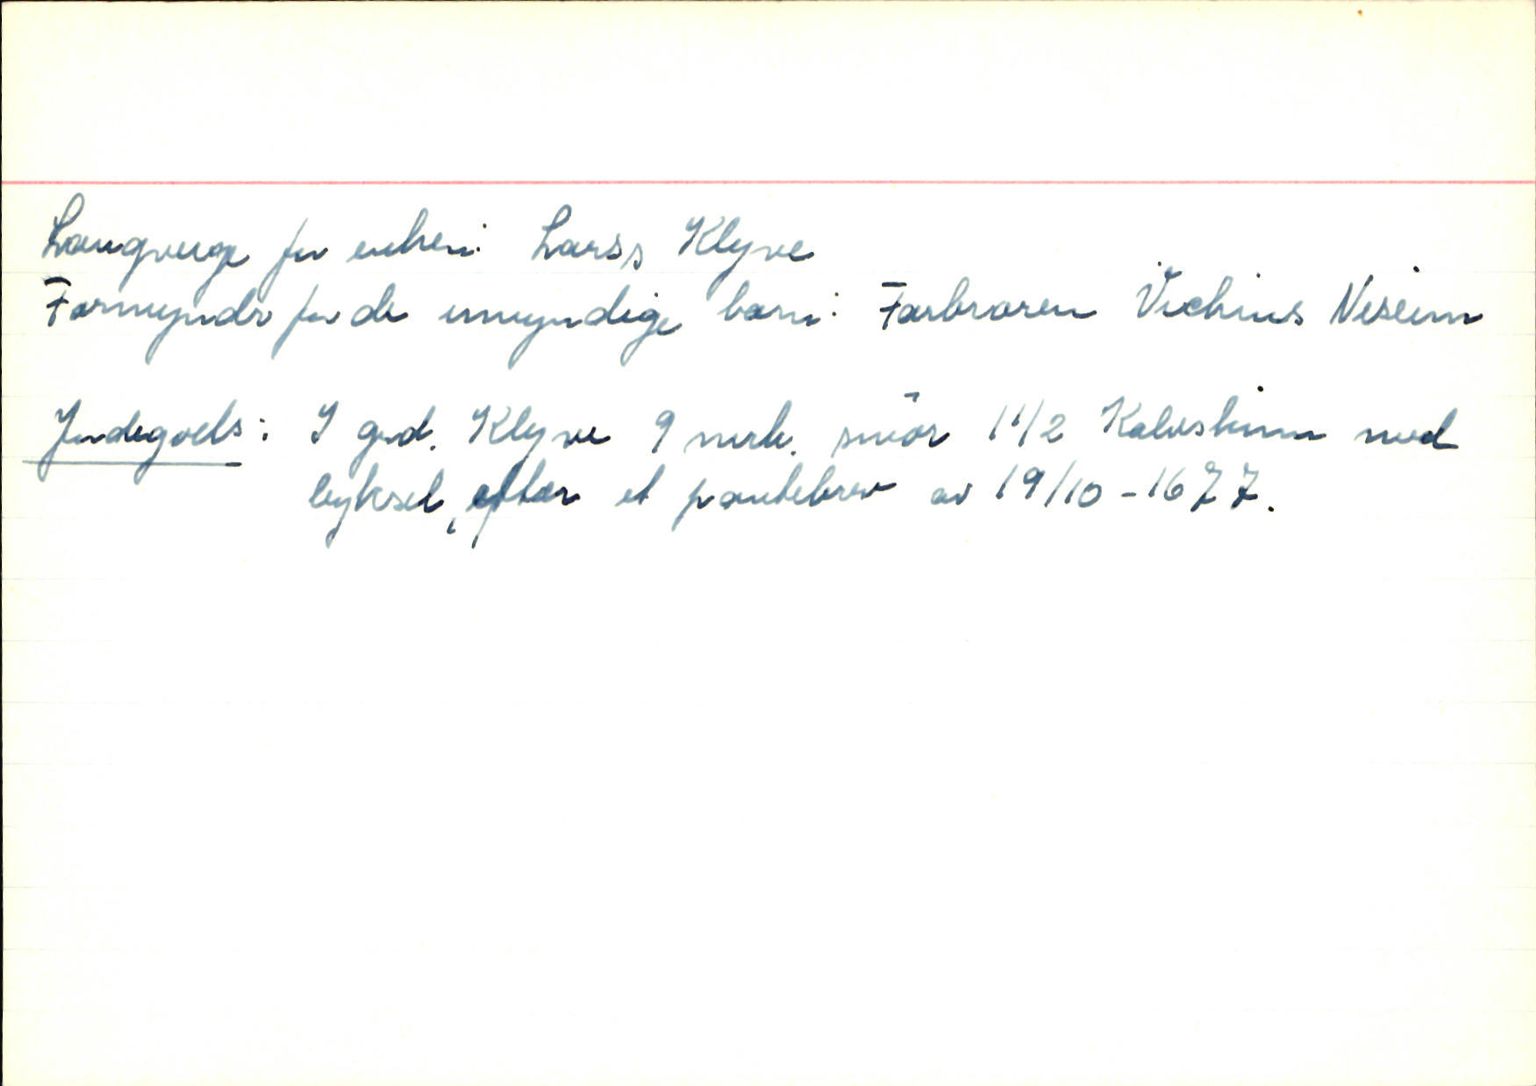 Laugverge for enken: Lars's Klyve
Formyndr for de umyndige barn: Farbroren Vichins Neseim
Jordegods: I grd. Klyve 9 merk. smör 1 1/2 Kalvskinn med
byksel, efter et pantebrev av 19/10-1677.